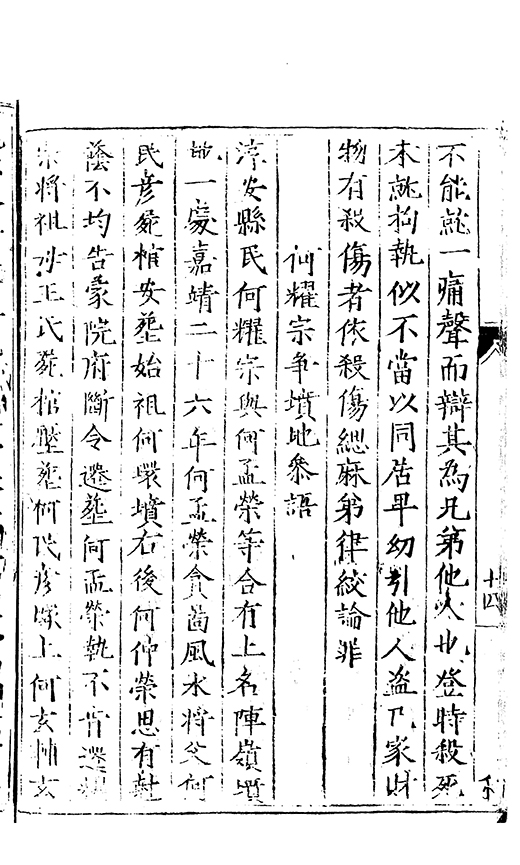 不能就一痛聲而辯其為兄弟他人也登時殺死
未就拘執似不當以同居卑幼引他人盜己家財
物有殺傷者依殺傷緦麻弟律絞論罪
何耀宗爭墳地參語
淳安縣民何耀宗與何孟榮等合有土名陣嶺墳
地一處嘉靖二十六年何孟榮貪啚風水將父何
民彦屍棺安塟始祖何環墳右後何仲榮思有對
蔭不均告蒙院府斷令遷塟何孟榮執不肯遷
將祖母王氏屍棺塟何民彦上何玄
十四